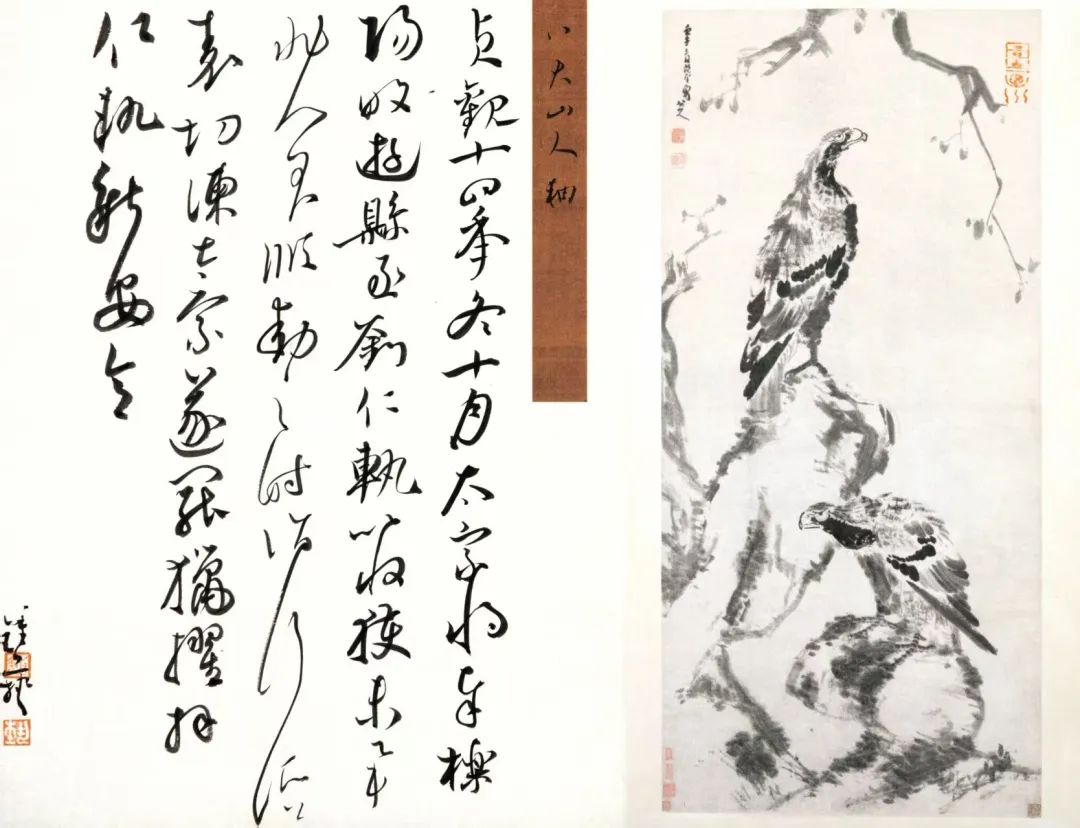 八大山人軸
貞觀十四年冬十月太宗將幸櫟
陽畋遊縣丞劉仁軌以收獲未畢
非人君順動之時詣行所上
表切諫太宗遂罷獵擢拜
仁軌新安令
八大山人